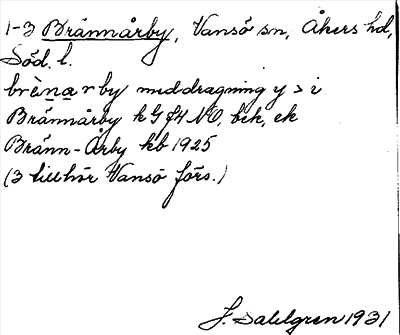 1-3 Brännårby, Vansö sn, Åkers hd,
Söd. l.
brèn̲a̲r by meddragning y > i
Brännårby k G f4 NO, bek, ek
Bränn-Årby kb 1925
(3 tillhör Vansö förs.)
J. Dahlgren 1931